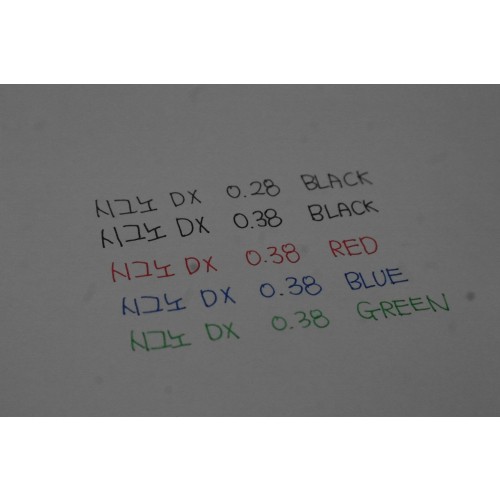 시그노 DX 0.28 BLACK
시그노 DX 0.38 BLACK
시그노 DX 0.38 RED
시그노 DX 0.38 BLUE
시그노 DX 0.38 GREEN